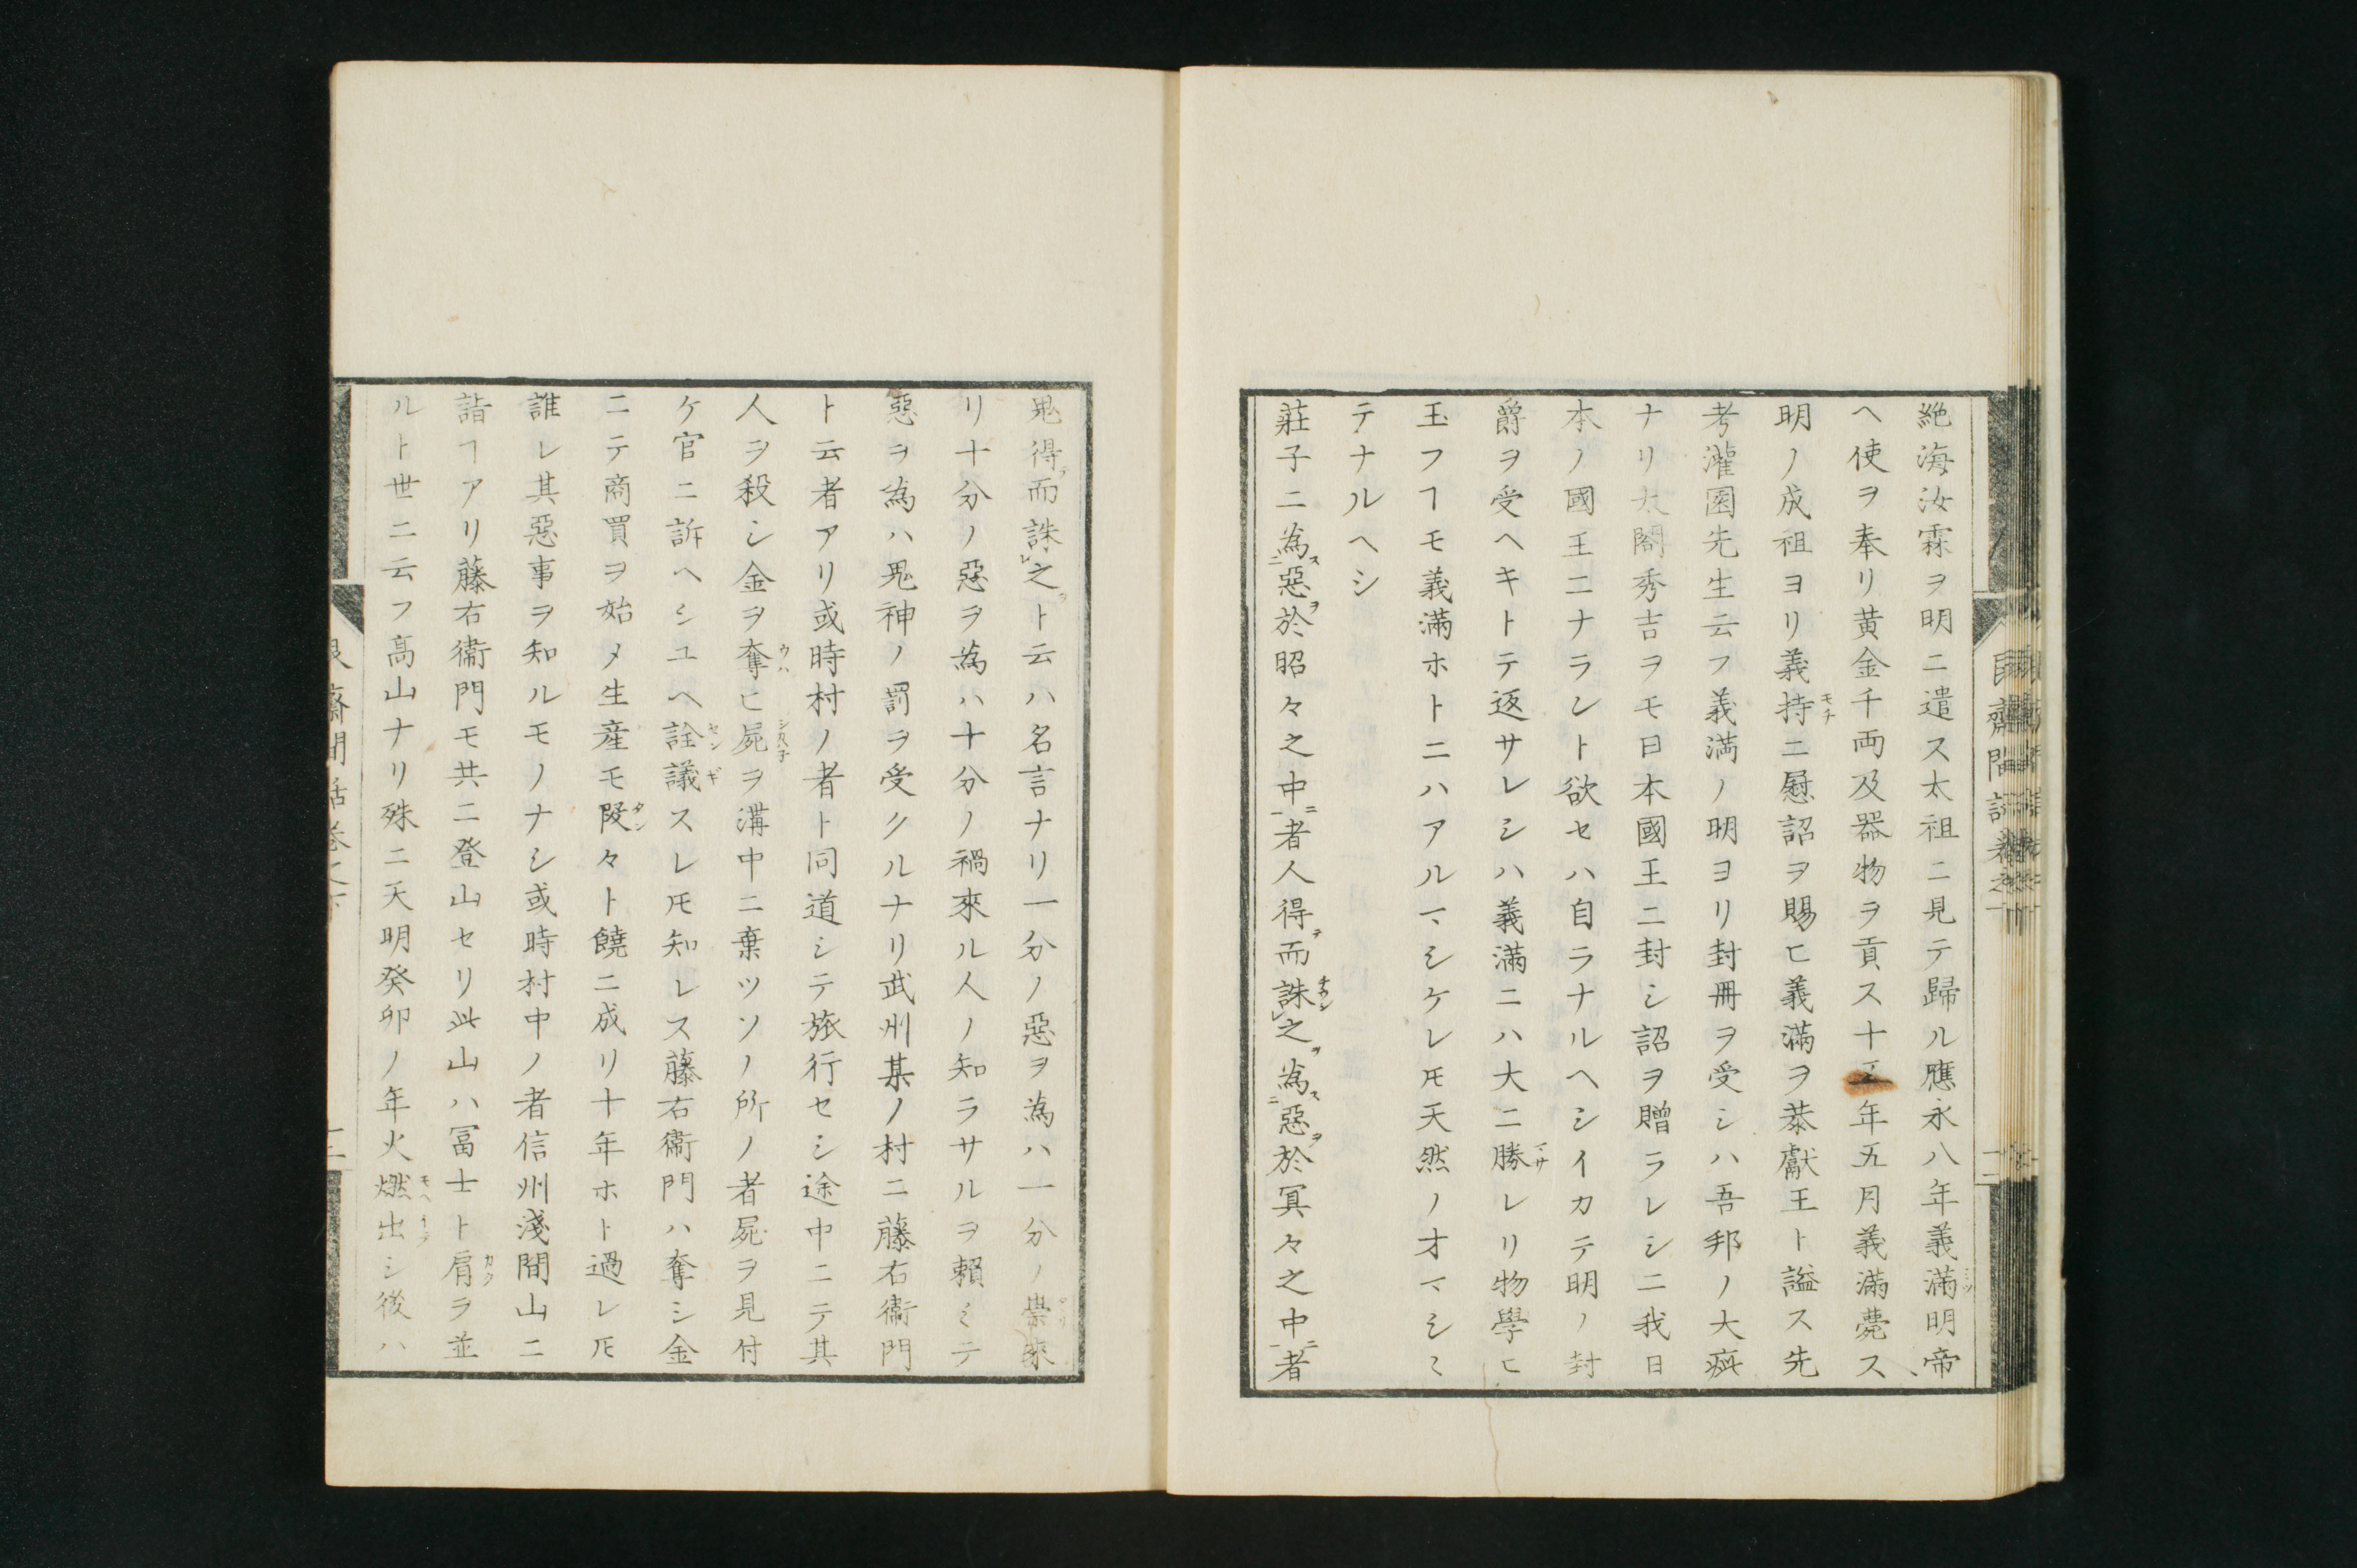 絶海汝霖ヲ明ニ遣ス太祖ニ見テ歸ル應永八年義滿明帝
ヘ使ヲ奉リ黄金千両及器物ヲ貢ス十五年五月義滿薨ス
明ノ成祖ヨリ義持ニ慰詔ヲ賜ヒ義滿ヲ恭獻王ト謚ス先
考灌園先生云フ義満ノ明ヨリ封冊ヲ受シハ吾邦ノ大痴
ナリ太閤秀吉ヲモ日本國王ニ封シ詔ヲ贈ラレシニ我日
本ノ國王ニナラント欲セハ自ラナルヘシイカテ明ノ封
爵ヲ受ヘキトテ返サレシハ義滿ニハ大ニ勝レリ物學ヒ
玉フヿモ義滿ホトニハアルマシケレ𪜈天然ノオマシミ
テナルヘシ
莊子ニ為惡於昭々之中者人得而誅之為惡於冥々之中者
鬼得而誅之ト云ハ名言ナリ一分ノ惡ヲ為ハ一分ノ祟來
リ十分ノ惡ヲ為ハ十分ノ禍來ル人ノ知ラサルヲ頼ミテ
惡ヲ為ハ鬼神ノ罰ヲ受クルナリ武州某ノ村ニ藤右衛門
ト云者アリ或時村ノ者ト同道シテ旅行セシ途中ニテ其
人ヲ殺シ金ヲ奪ヒ屍ヲ溝中ニ棄ツソノ所ノ者屍ヲ見付
ケ官ニ訴ヘシユヘ詮議スレ𪜈知レス藤右衛門ハ奪シ金
ニテ商買ヲ始メ生産モ段々ト饒ニ成リ十年ホト過レ𪜈
誰レ其惡事ヲ知ルモノナシ或時村中ノ者信州淺間山ニ
詣ヿアリ藤右衛門モ共ニ登山セリ此山ハ冨士ト肩ヲ並
ルト世ニ云フ高山ナリ殊ニ天明癸卯ノ年火燃出シ後ハ